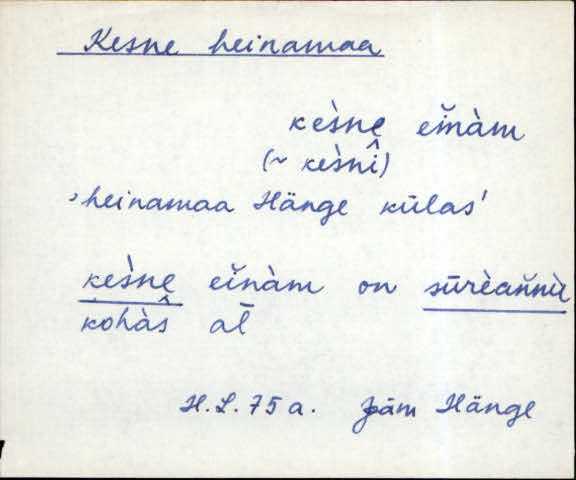 Kesne heinamaa
kèsnẹ eĭnàm
(~ kèsnî)
'heinamaa Hänge külas'
kèsnẹ eĭnàm on sūrèaňnìt
kohàŝ al̄
H.L. 75 a. Jäm Hänge